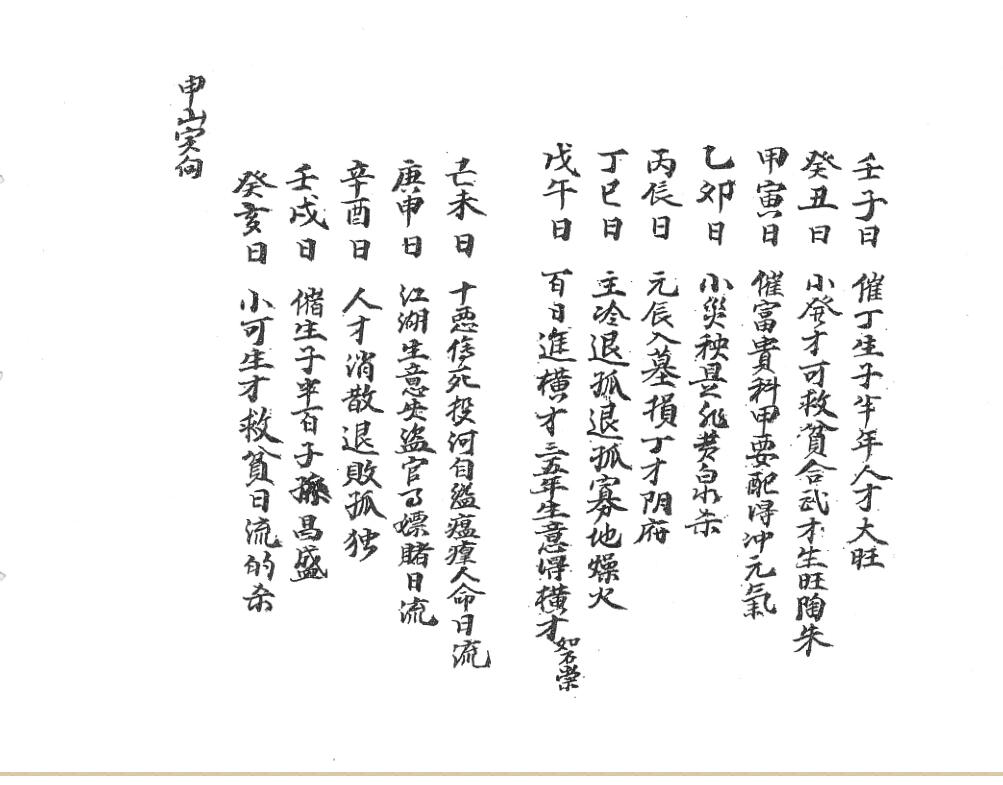 壬子日 催丁生子半年人才大旺
癸丑日 小發才可救貧合武才生旺陶朱
甲寅日 催富貴科甲要配得冲元氣
乙卯日 小災秧具 黄白水杀
丙辰日 元辰入墓損丁才阴府
丁巳日 主冷退孤退孤寡地燥火
戊午日 百日進横才三五年生意得横才
己未日 十惡 死投河自縊瘟瘴人命日流
庚申日 江湖生意失盗官 嫖賭日流
辛酉日 人才消散退敗孤独
壬戌日 生子半百子孫昌盛
癸亥日 小可生才救貧日流的杀
申山寅向